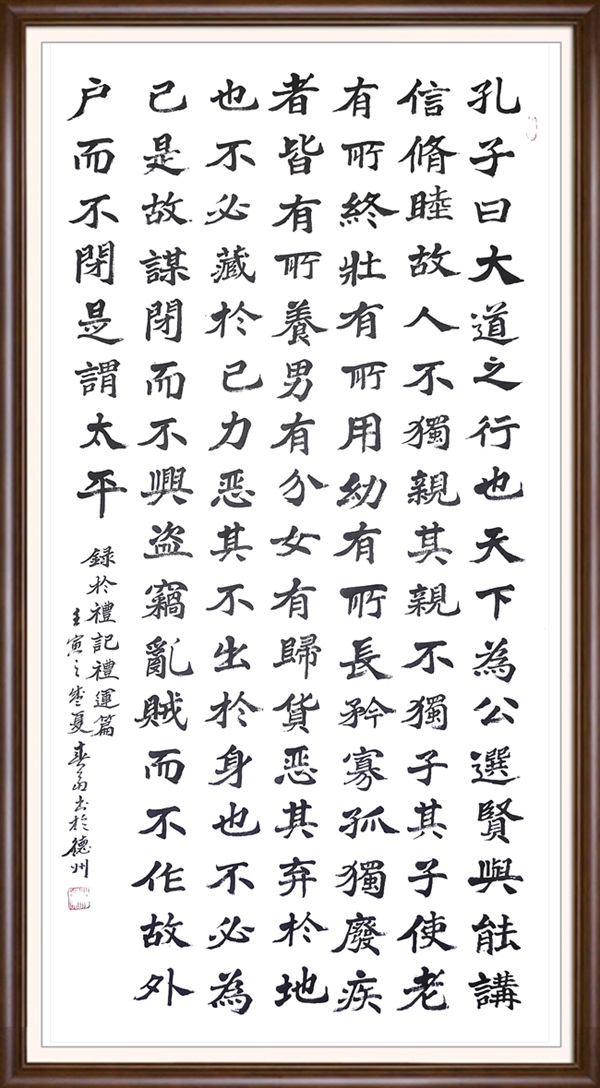 孔子曰大道之行也天下為公選賢與能講
信脩睦故人不獨親其親不獨子其子使老
有所終壯有所用幼有所長矜寡孤獨廢疾
者皆有所養男有分女有歸貨恶其弃於地
也不必藏於己力恶其不出於身也不必為
己是故謀閉而不興盗竊亂賊而不作故外
户而不閉是謂太平
錄於禮記禮運篇
壬寅之盛夏春书於德州